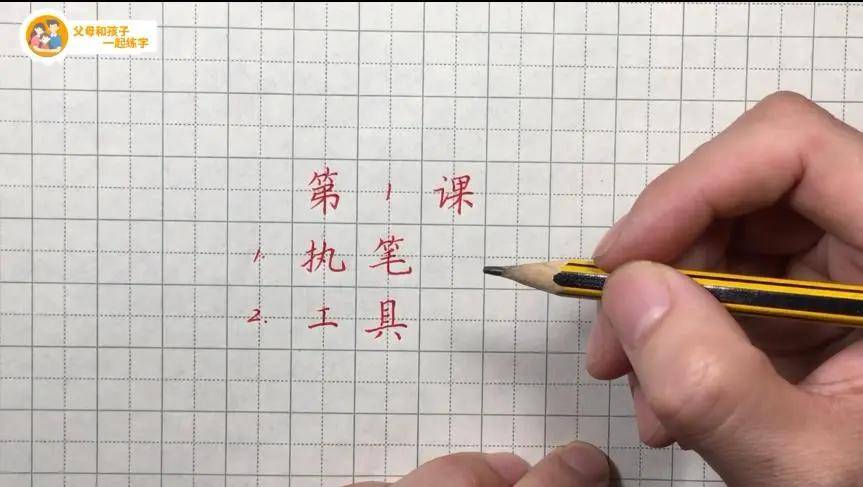 父母和孩子
一起练字
第1课
1. 执笔
2. 工具